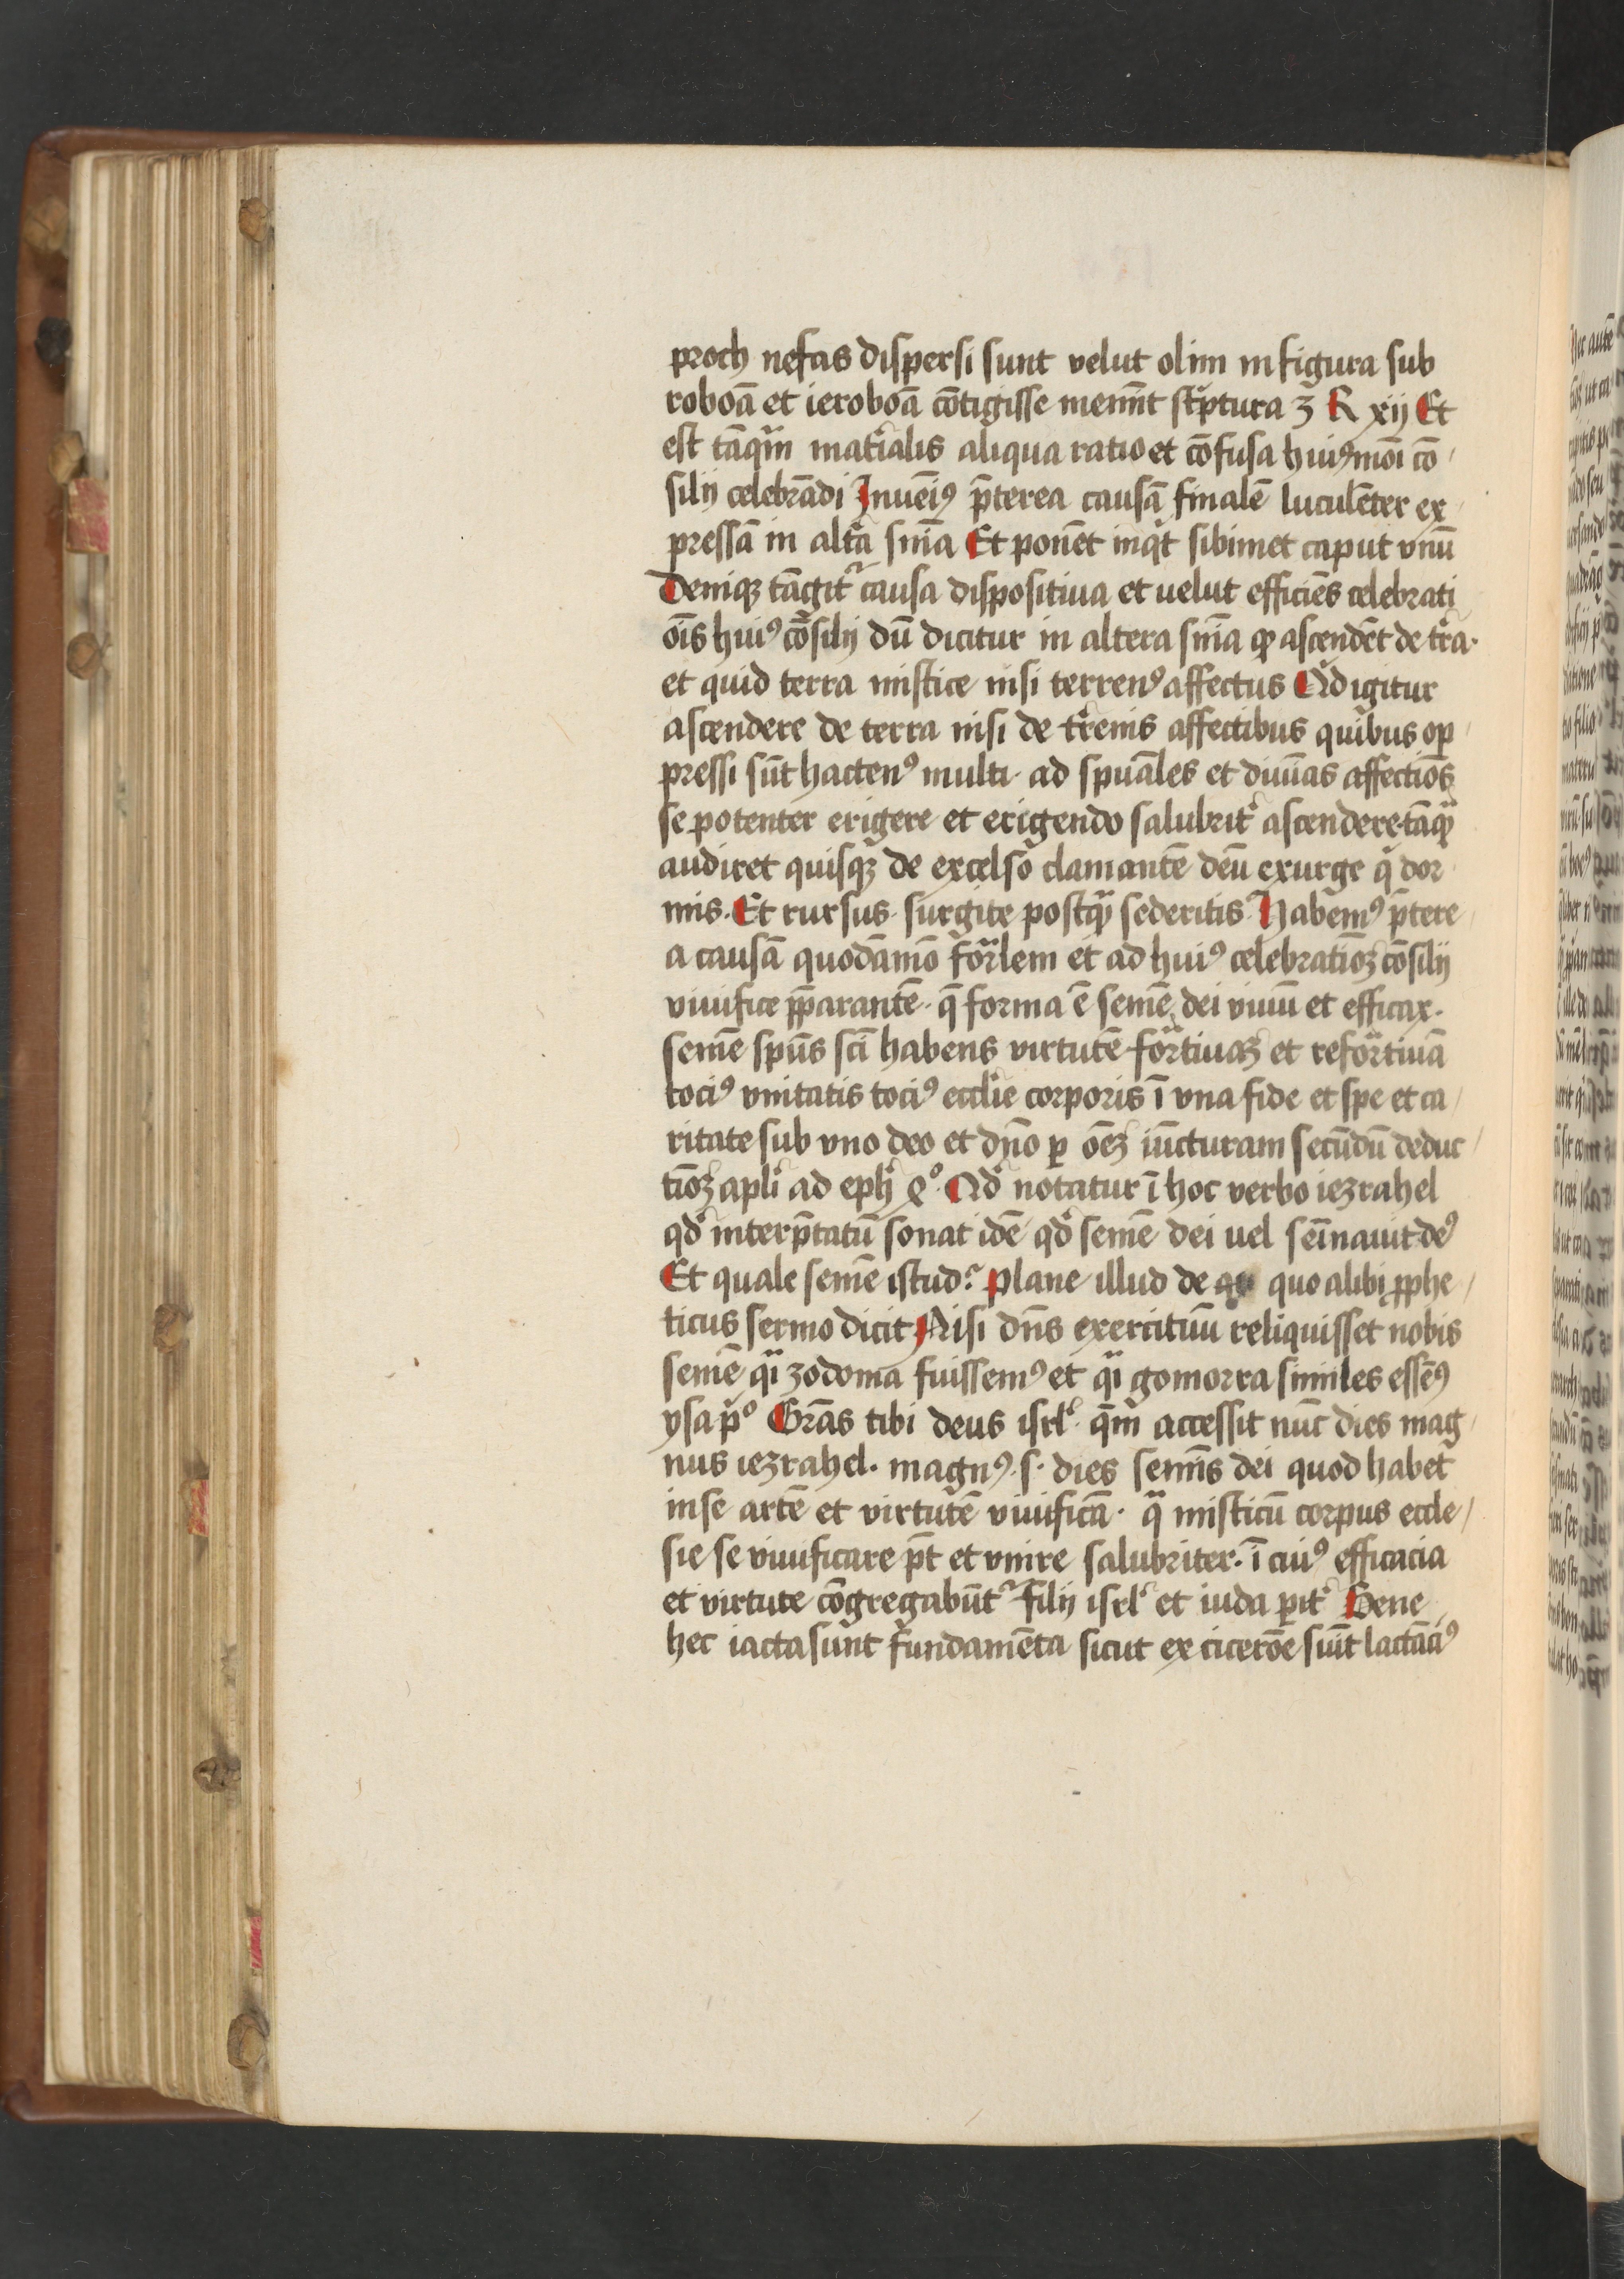 proch nefas dispersi sunt velut olim in figura sub
roboā et ieroboā cōtigisse memīnt sc͛ptura 3 R xij Et
est tāqͣm mat͛ialis aliqua ratio et cōfusa huiꝰmōi cō
silij celebrādi Inuēiꝰ p̄terea causā finalē luculēter ex
pressā in alt͛a snīa Et ponēt inqͥt sibimet caput vnū
Deniqꝫ tāgit᷑ causa dispositiua et uelut efficiēs celebrati
ōis huiꝰ cōsilij dū dicitur in altera snīa ꝙ ascendēt de t͛ra·
et quid terra mistice nisi terrenꝰ affectus Qd igitur
ascendere de terra nisi de t͛renis affectibus quibus op
pressi sūt hactenꝰ multi· ad spūales et diuīas affectiōs
se potenter erigere et erigendo salubrit͛ ascendere tāqͣ
audiret quisqꝫ de excelso clamantē deū exurge qͥ dor
mis· Et rursus· surgite postqͣ sederitis· Habemꝰ p̄tere
a causā quodāmō for͛lem et ad huiꝰ celebratiōꝫ cōsilij
viuifice p̄parantē· q̄ forma ē semē dei viuū et efficax·
semē spūs scī habens virtutē for͛tiuaꝫ et refor͛tiuā
tociꝰ vnitatis tociꝰ eccl͛ie corporis ī vna fide et spe et ca
ritate sub vno deo et dn̄o ꝑ oēꝫ iūcturam secūdū deduc
tiōꝫ apl͛i ad eph͛ 4º· Qd͛ notatur ī hoc verbo iezrahel
qd͛ interp̄tatū sonat idē qd͛ semē dei uel semīauit deꝰ
Et quale semē istud? Plane illud de quo alibi ꝓphe
ticus sermo dicit Nisi dn̄s exercituū reliquisset nobis
semē qͣi zodoma fuissemꝰ et qͣi gomorra similes essēꝰ
ysa pº Grās tibi deus isrl͛· qm̄ accessit nūc dies mag
nus iezrahel· magnꝰ·s· dies semīs dei quod habet
in se artē et virtutē viuificā· qͣ misticū corpus eccle
sie se viuificare pt̄ et vnire salubriter· ī cuiꝰ efficacia
et virtute cōgregabūt᷑ filij isrl͛ et iuda pit͛ Bene
hec iacta sunt fundamēta sicut ex cicerōe suīt lactāciꝰ